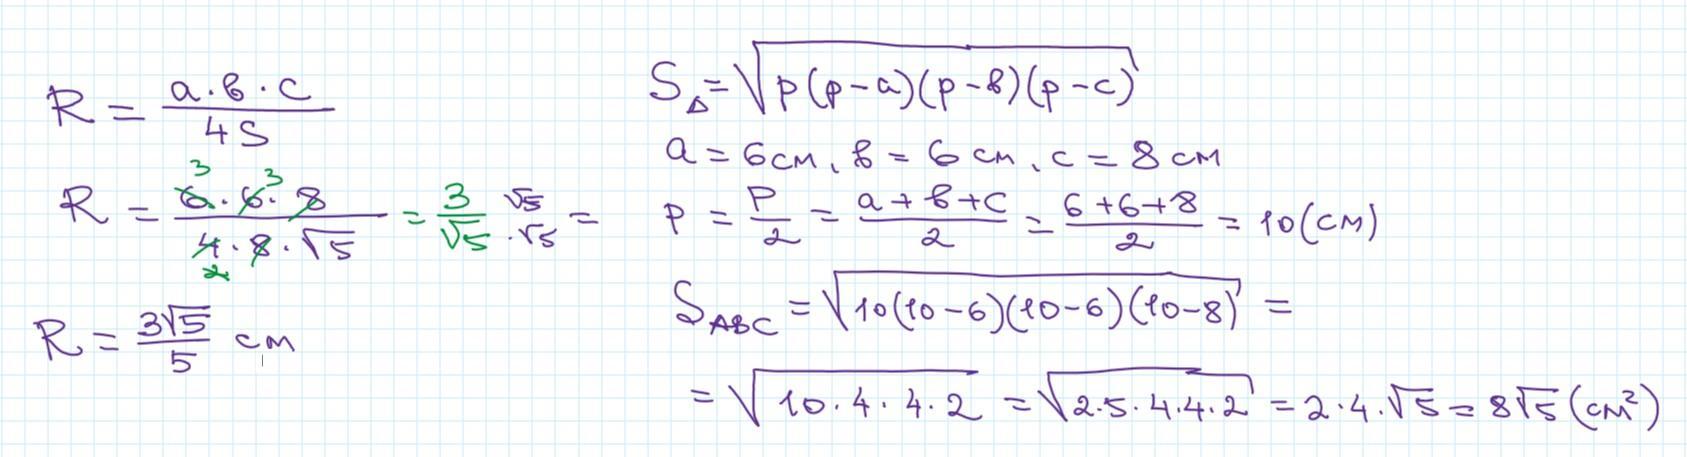 R = a.в.c / 4S
R = 6.6.8 / 4.8.√5 = 3/√5 .√5/√5 =
3 3
2
R = 3√5 / 5 cm
S△ = √p(p-a)(p-в)(p-c)
a = 6 см, в = 6 см, c = 8 см
p = P/2 = a+в+c / 2 = 6+6+8 / 2 = 10(см)
S ABC = √10(10-6)(10-6)(10-8) =
= √10.4.4.2 = √2.5.4.4.2 = 2.4.√5 = 8√5 (см²)